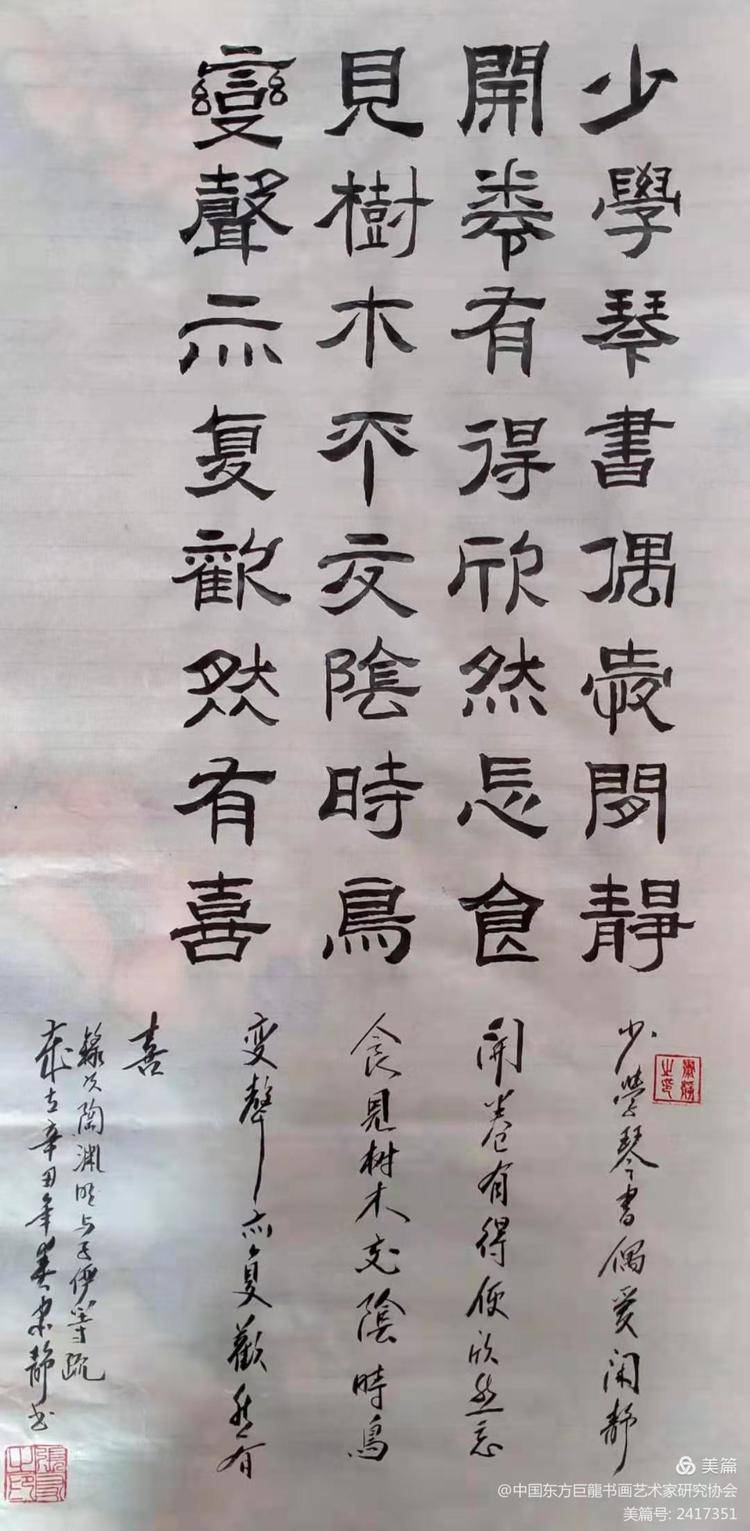 少學琴書偶愛閒靜
開卷有得欣然忘食
見樹木平交陰時鳥
變聲亦复歡然有喜
少學琴書偶爱闲静
開卷有得便欣然忘
食見树木交陰時鳥
变聲亦复歡然有
喜
錄晋陶淵明与子俨等疏
歲在辛丑年春 静书
美篇
@中国东方巨龍书画艺术家研究协会
美篇号: 2417351